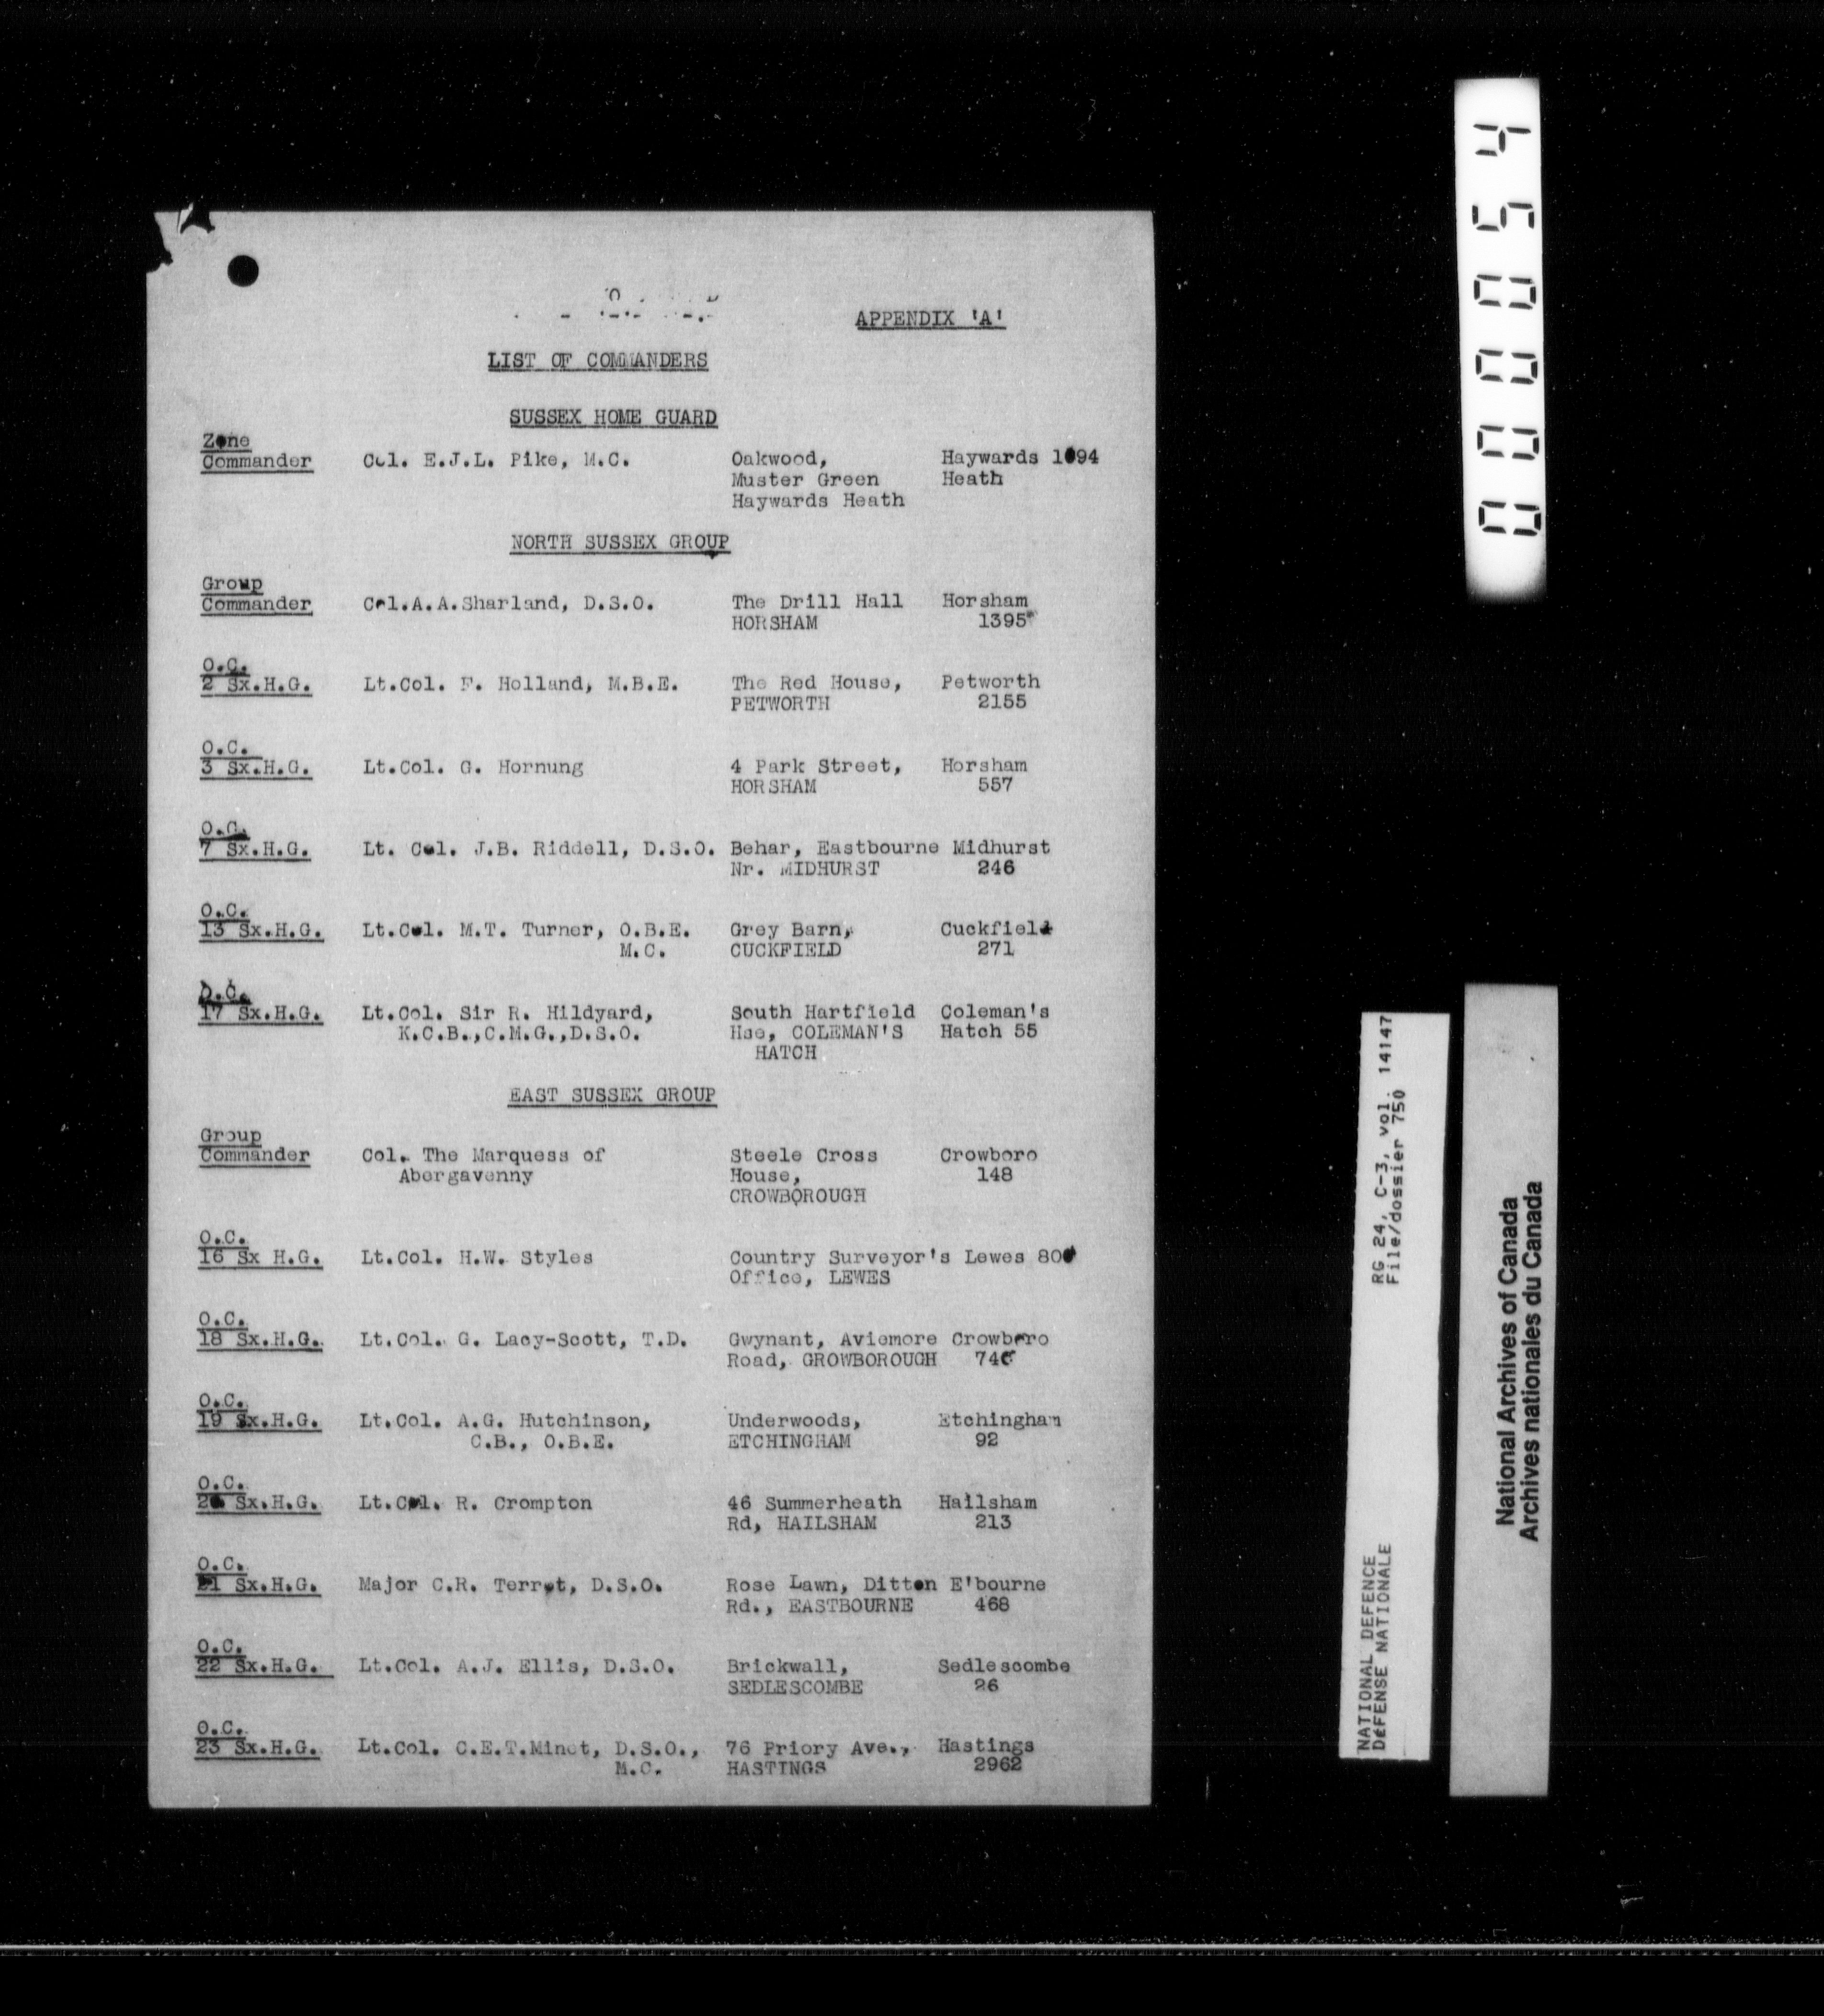 APPENDIX 'A'
LIST OF COMMANDERS
SUSSEX HOME GUARD
Zone
Commander Col. E.J.L. Pike, M.C. Oakwood, Haywards 1094
Muster Green Heath
Haywards Heath
NORTH SUSSEX GROUP
Group
Commander Col.A.A.Sharland, D.S.O. The Drill Hall Horsham
HORSHAM 1395
O.C.
2 Sx.H.G. Lt.Col. F. Holland, M.B.E. The Red House, Petworth
PETWORTH 2155
O.C.
3 Sx.H.G. Lt.Col. G. Hornung 4 Park Street, Horsham
HORSHAM 557
O.C.
7 Sx.H.G. Lt. Col. J.B. Riddell, D.S.O. Behar, Eastbourne Midhurst
Nr. MIDHURST 246
O.C.
13 Sx.H.G. Lt.Col. M.T. Turner, O.B.E. Grey Barn, Cuckfield
M.C. CUCKFIELD 271
O.C.
17 Sx.H.G. Lt.Col. Sir R. Hildyard, South Hartfield Coleman's
K.C.B.,C.M.G.,D.S.O. Hse, COLEMAN'S Hatch 55
HATCH
EAST SUSSEX GROUP
Group
Commander Col. The Marquess of Steele Cross Crowboro
Abergavenny House, 148
CROWBOROUGH
O.C.
16 Sx H.G. Lt.Col. H.W. Styles Country Surveyor's Lewes
Office, LEWES
O.C.
18 Sx.H.G. Lt.Col. G. Lacy-Scott, T.D. Gwynant, Aviemore Crowboro
Road, GROWBOROUGH
O.C.
19 Sx.H.G. Lt.Col. A.G. Hutchinson, Underwoods, Etchingham
C.B., O.B.E. ETCHINGHAM 92
O.C.
20 Sx.H.G. Lt.Col. R. Crompton 46 Summerheath Hailsham
Rd, HAILSHAM 213
O.C.
21 Sx.H.G. Major C.R. Terrot, D.S.O. Rose Lawn, Ditton E'bourne
Rd., EASTBOURNE 468
O.C.
22 Sx.H.G. Lt.Col. A.J. Ellis, D.S.O. Brickwall, Sedlescombe
SEDLESCOMBE 26
O.C.
23 Sx.H.G. Lt.Col. C.E.T.Minet, D.S.O., 76 Priory Ave., Hastings
M.C. HASTINGS 2962
000054
RG 24, C-3, vol. 14147
File/dossier 750
NATIONAL DEFENCE
DéFENSE NATIONALE
National Archives of Canada
Archives nationales du Canada